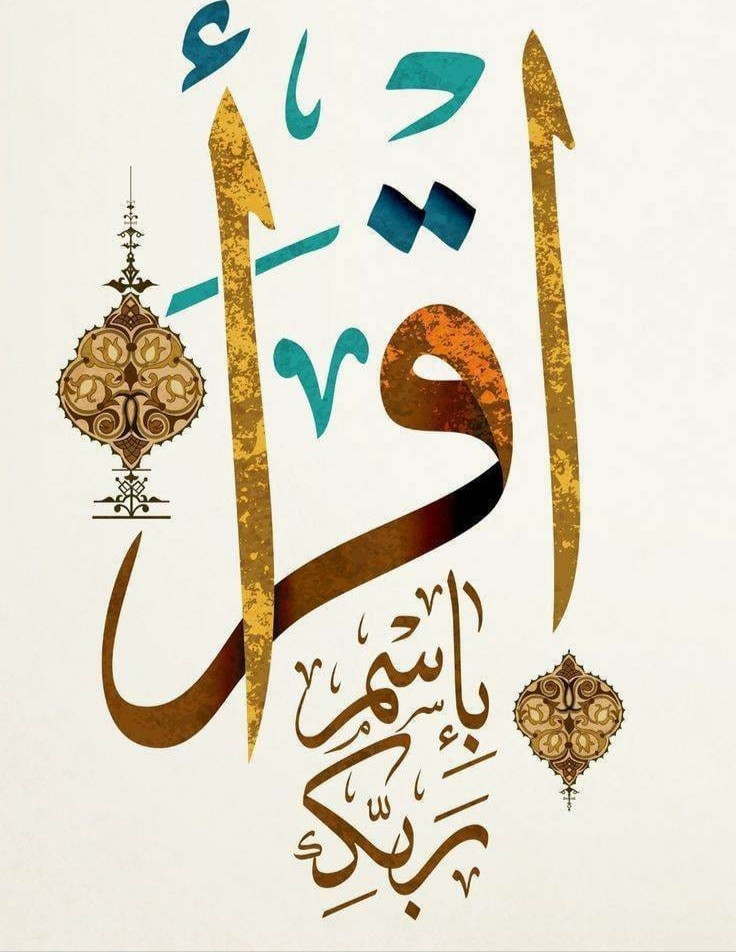 اقرأ
بإسم
ربك